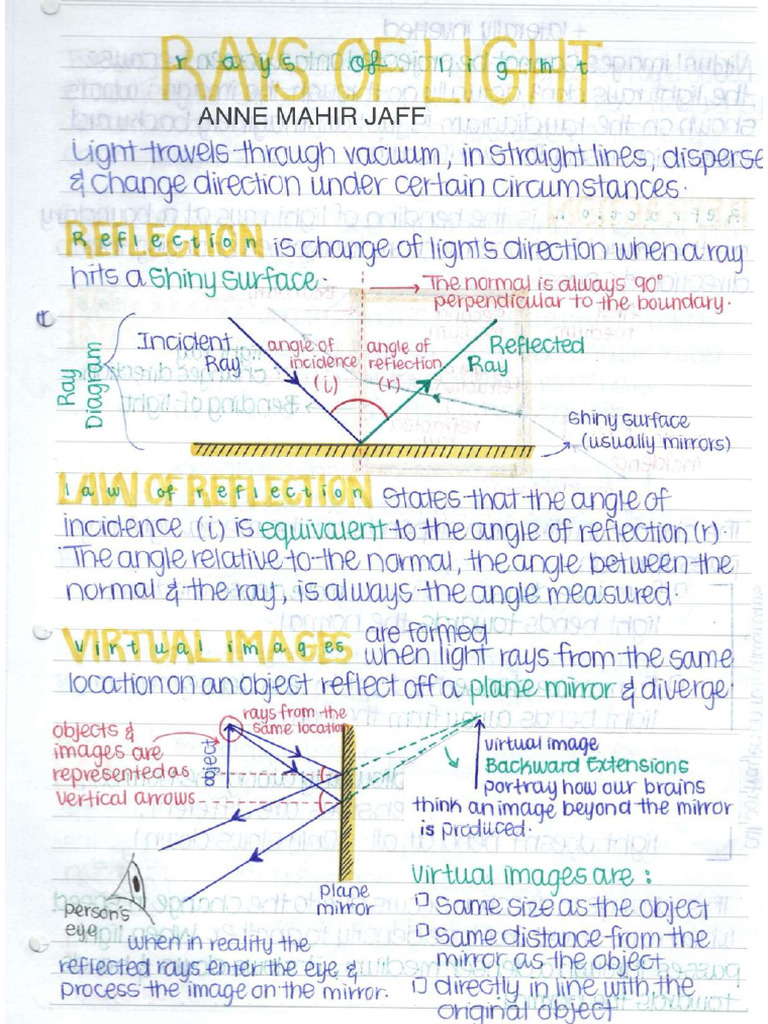 RAYS OF LIGHT
rays of light
ANNE MAHIR JAFF
Light travels through vacuum, in straight lines, disperse
& change direction under certain circumstances.
REFLECTION is change of light's direction when a ray
hits a shiny surface.
The normal is always 90°
perpendicular to the boundary.
Ray
Diagram
Incident
Ray
angle of
incidence
(i)
angle of
reflection
(r)
Reflected
Ray
shiny surface
(usually mirrors)
LAW OF REFLECTION states that the angle of
incidence (i) is equivalent to the angle of reflection (r).
The angle relative to the normal, the angle between the
normal & the ray, is always the angle measured.
VIRTUAL IMAGES are formed
when light rays from the same
location on an object reflect off a plane mirror & diverge.
objects &
images are
represented as
vertical arrows
object
rays from the
same location
virtual image
Backward Extensions
portray how our brains
think an image beyond the mirror
is produced.
plane
mirror
person's
eye
when in reality the
reflected rays enter the eye &
process the image on the mirror.
virtual images are :
same size as the object
same distance from the
mirror as the object
directly in line with the
original object